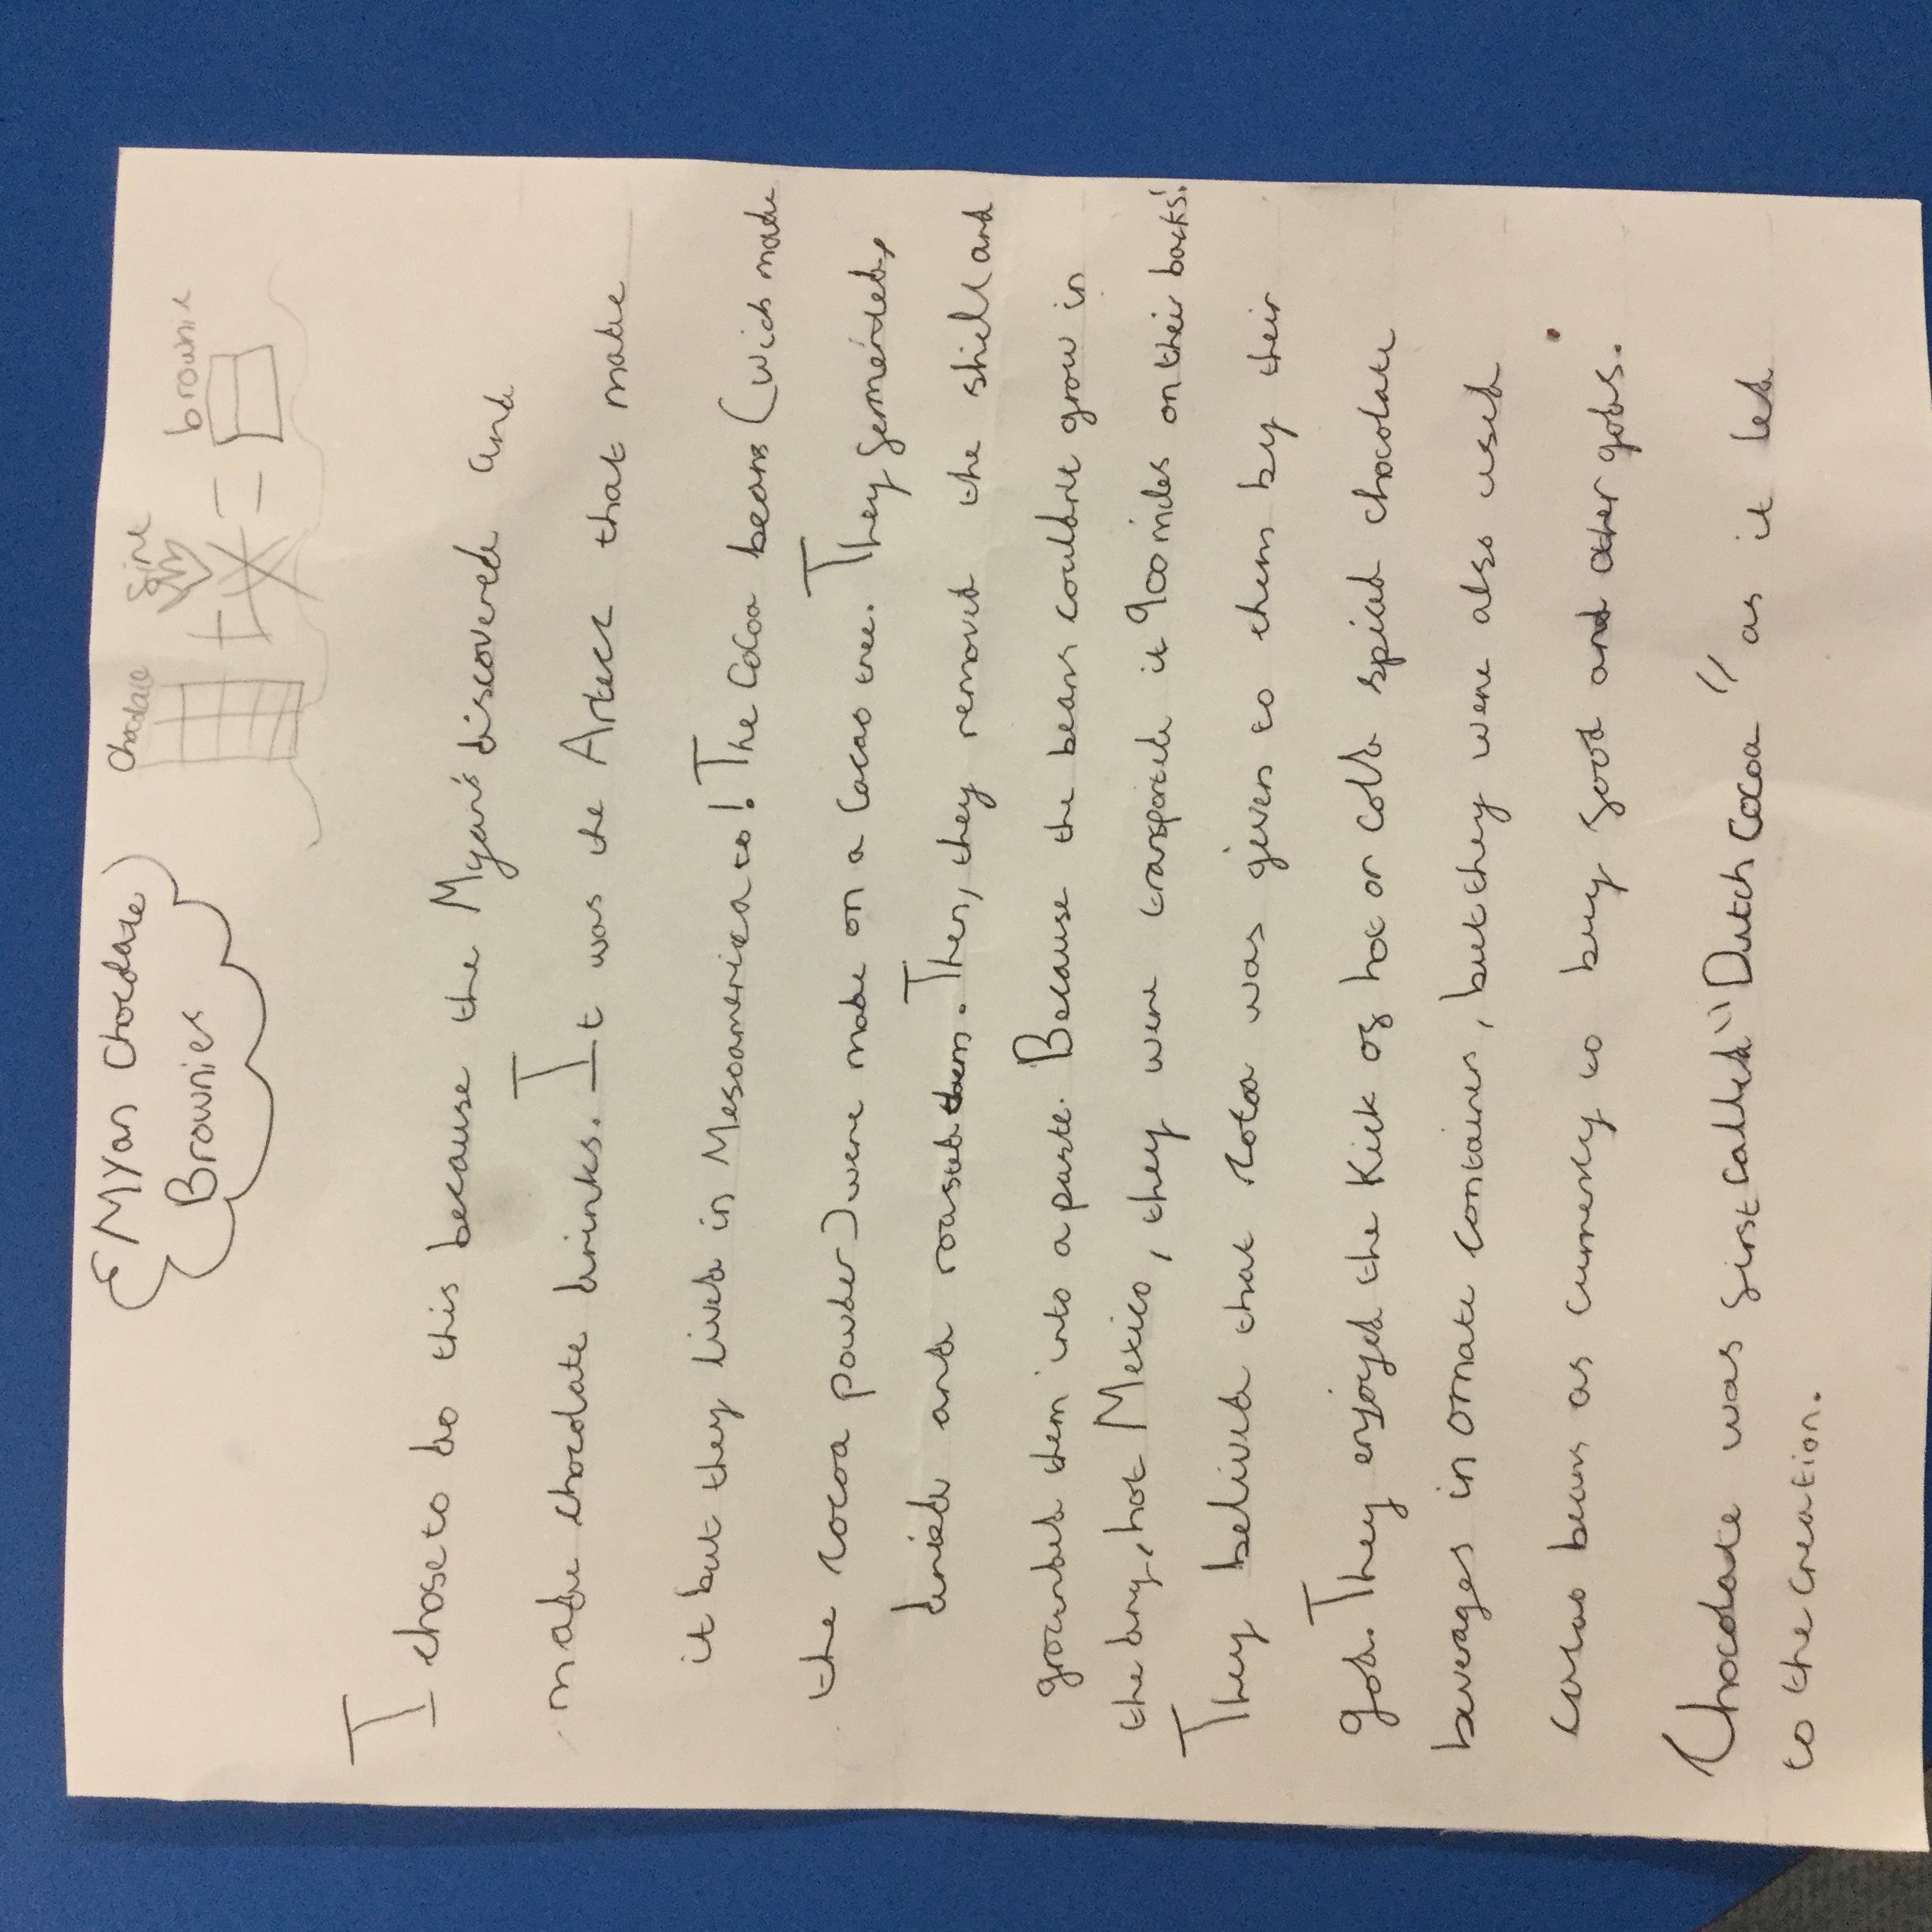 Myan Chocolate
Brownies
Chocolate
fire
brownie
I chose to do this because the Myan's discovered and
made chocolate drinks. It was the Aztecz that made
it but they lived in Mesoamerica to! The Cocoa beans (wich made
the cocoa powder) were made on a Cacao tree. They fermented,
dried and roasted them. Then, they removed the shell and
grounded them into a paste. Because the beans couldnt grow in
the dry, hot Mexico, they were transported it 900 miles on their backs!
They belived that cocoa was given to them by their
gods. They enjoyed the kick of hot or cold spiced chocolate
beverages in ornate containers, but they were also used
cacao beans as currency to buy food and other gobs.
Chocolate was first called "Dutch Cocoa" as it led
to the creation.